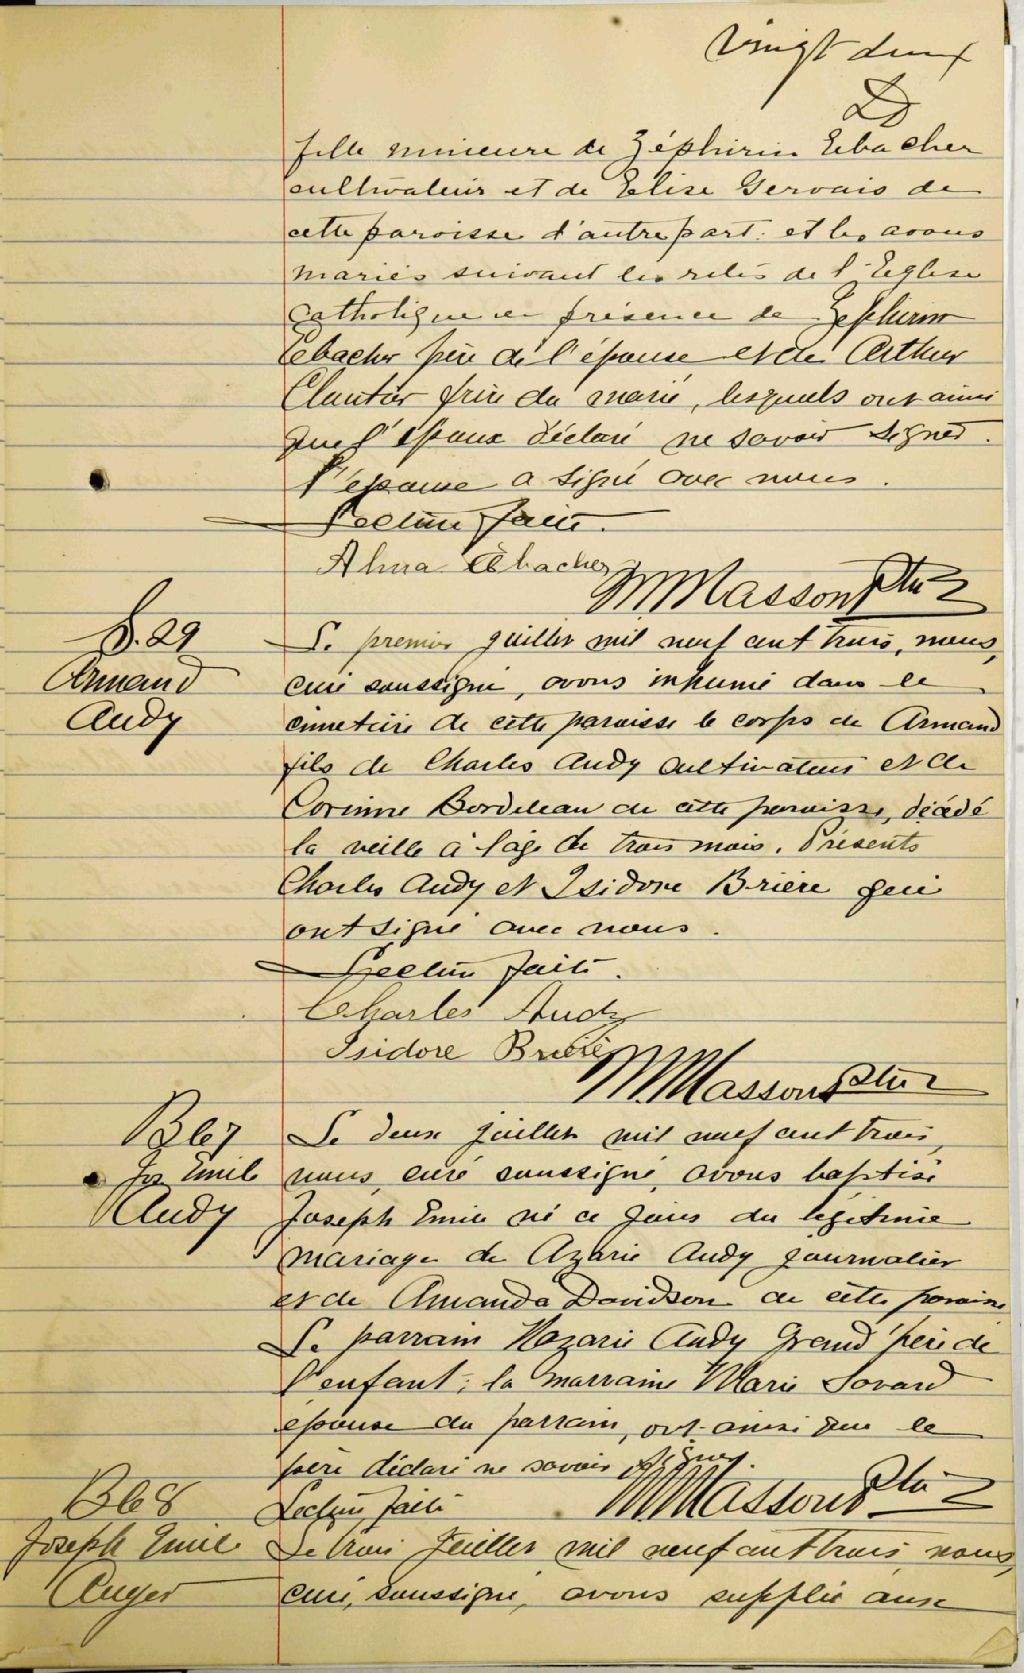 vingt deux
fille mineure de Zéphirin Ebacher
cultivateur et de Elise Gervais de
cette paroisse d'autre part: et les avons
mariés suivant les rites de l'Eglise
Catholique en présence de Zéphirin
Ebacher père de l'épouse et de Arthur
Cloutier frère du marié, lesquels ont ainsi
que l'époux déclaré ne savoir signer.
l'épouse a signé avec nous.
Lecture faite.
Alma Ebacher
M Masson Ptre
S. 29
Armand
Audy
Le premier juillet mil neuf cent trois, nous,
curé soussigné, avons inhumé dans le
cimetière de cette paroisse le corps de Armand
fils de Charles Audy cultivateur et de
Corinne Bordeleau de cette paroisse, décédé
la veille à l'âge de trois mois. Présents
Charles Audy et Isidore Brière qui
ont signé avec nous.
Lecture faite.
Charles Audy
Isidore Brière
M. Masson Ptre
B 67
Jos Emile
Audy
Le deux juillet mil neuf cent trois,
nous, curé soussigné, avons baptisé
Joseph Emile né ce jour du légitime
mariage de Azarie Audy journalier
et de Amanda Davidson de cette paroisse
Le parrain Nazarie Audy Grand'père de
l'enfant; la marraine Marie Savard
épouse du parrain, ont ainsi que le
père déclaré ne savoir signer.
Lecture faite
M Masson Ptre
B 68
Joseph Emile
Auger
Le trois Juillet mil neuf cent trois, nous,
curé, soussigné, avons supplée aux